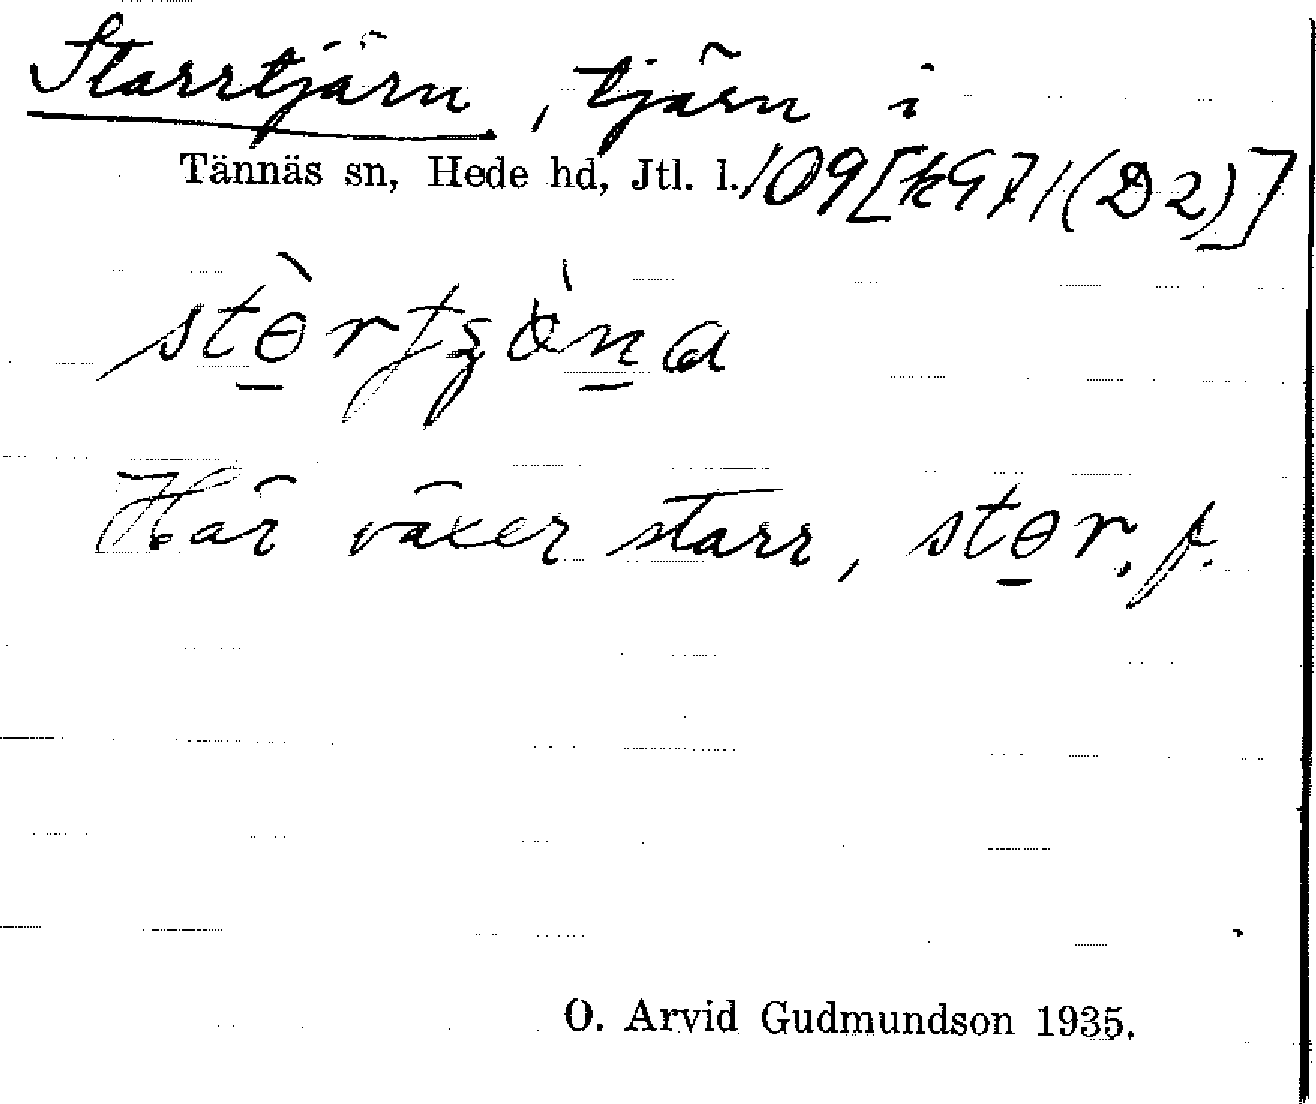 Starrtjärn, tjärn i
Tännäs sn, Hede hd, Jtl. l. 109[k971(D2)]
Här växer starr, stər, f.
O. Arvid Gudmundson 1935.